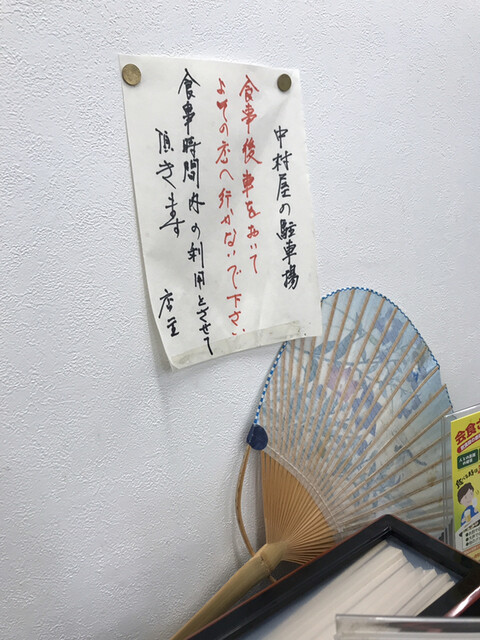 中村屋の駐車場
食事後車をおいて
よその店へ行かないで下さい
食事時間内の利用とさせて
頂きます
店主
会食